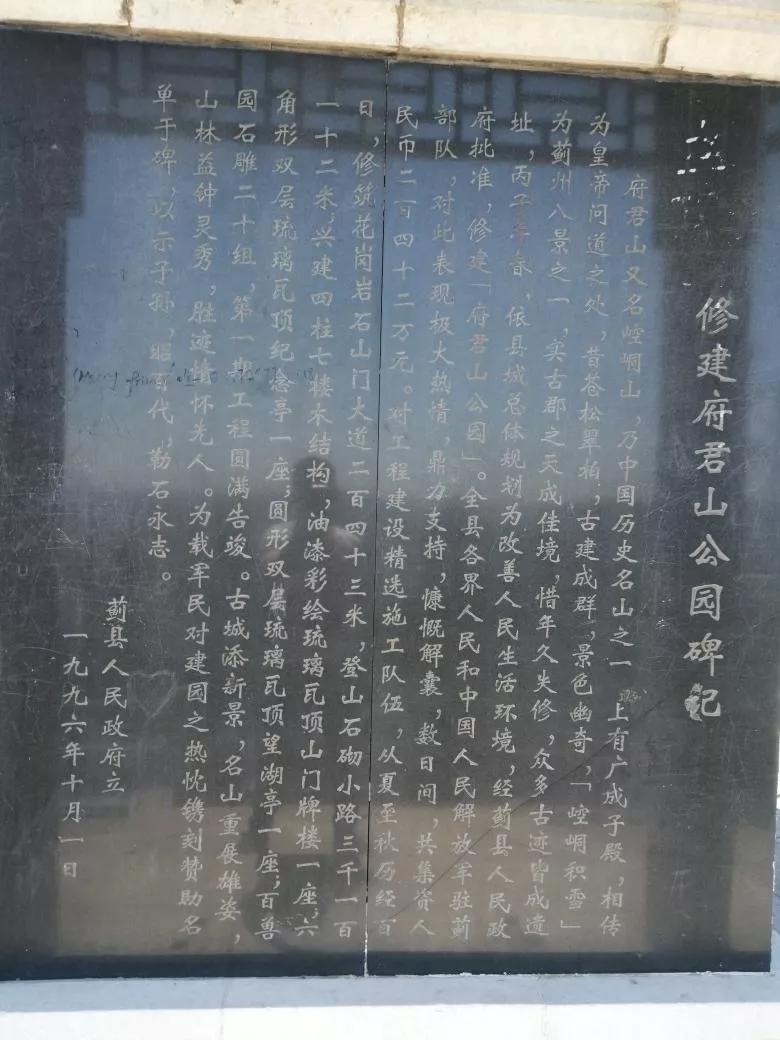 修建府君山公园碑记
府君山又名崆峒山，乃中国历史名山之一 上有广成子殿，相传
为皇帝问道之处，昔苍松翠柏，古建成群，景色幽奇，「崆峒积雪」
为蓟州八景之一，实古郡之天成佳境，惜年久失修，众多古迹皆成遗
址，丙子年春，依县城总体规划为改善人民生活环境，经蓟县人民政
府批准，修建「府君山公园」。全县各界人民和中国人民解放军驻蓟
部队，对此表现极大热情，鼎力支持，慷慨解囊，数日间，共集资人
民币二百四十二万元。对工程建设精选施工队伍，从夏至秋历经百
日，修筑花岗岩石山门大道二百四十三米，登山石砌小路三千一百
一十二米，兴建四柱七楼木结构，油漆彩绘琉璃瓦顶山门牌楼一座；六
角形双层琉璃瓦顶纪念亭一座；圆形双层琉璃瓦顶望湖亭一座；百兽
园石雕二十组，第一期工程圆满告竣。古城添新景，名山重展雄姿，
山林益钟灵秀，胜迹情怀先人。为载军民对建园之热忱镌刻赞助名
单于碑，以示子孙，昭百代，勒石永志。
蓟县人民政府立
一九九六年十月一日